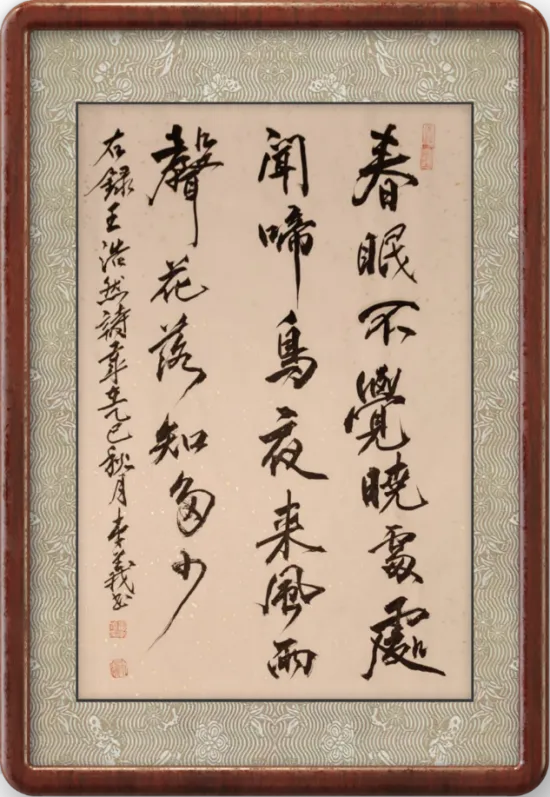 春眠不覺曉處處
聞啼鳥夜来風雨
聲花落知多少
右録王浩然詩章巳秋月李義书